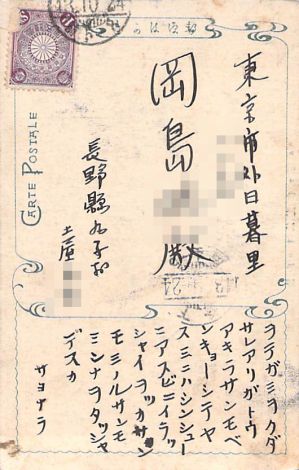 東京市外日暮里
岡島
長野縣丸子町
土屋
CARTE POSTALE
ヲテガミヲクダ
サレアリガトウ
アキラサンモベ
ンキョーシテヤ
スミニハシンシュー
ニアスビニイラッ
シャイヲッカサン
モミノルサンモ
ミンナヲタッシャ
デスカ
サヨナラ